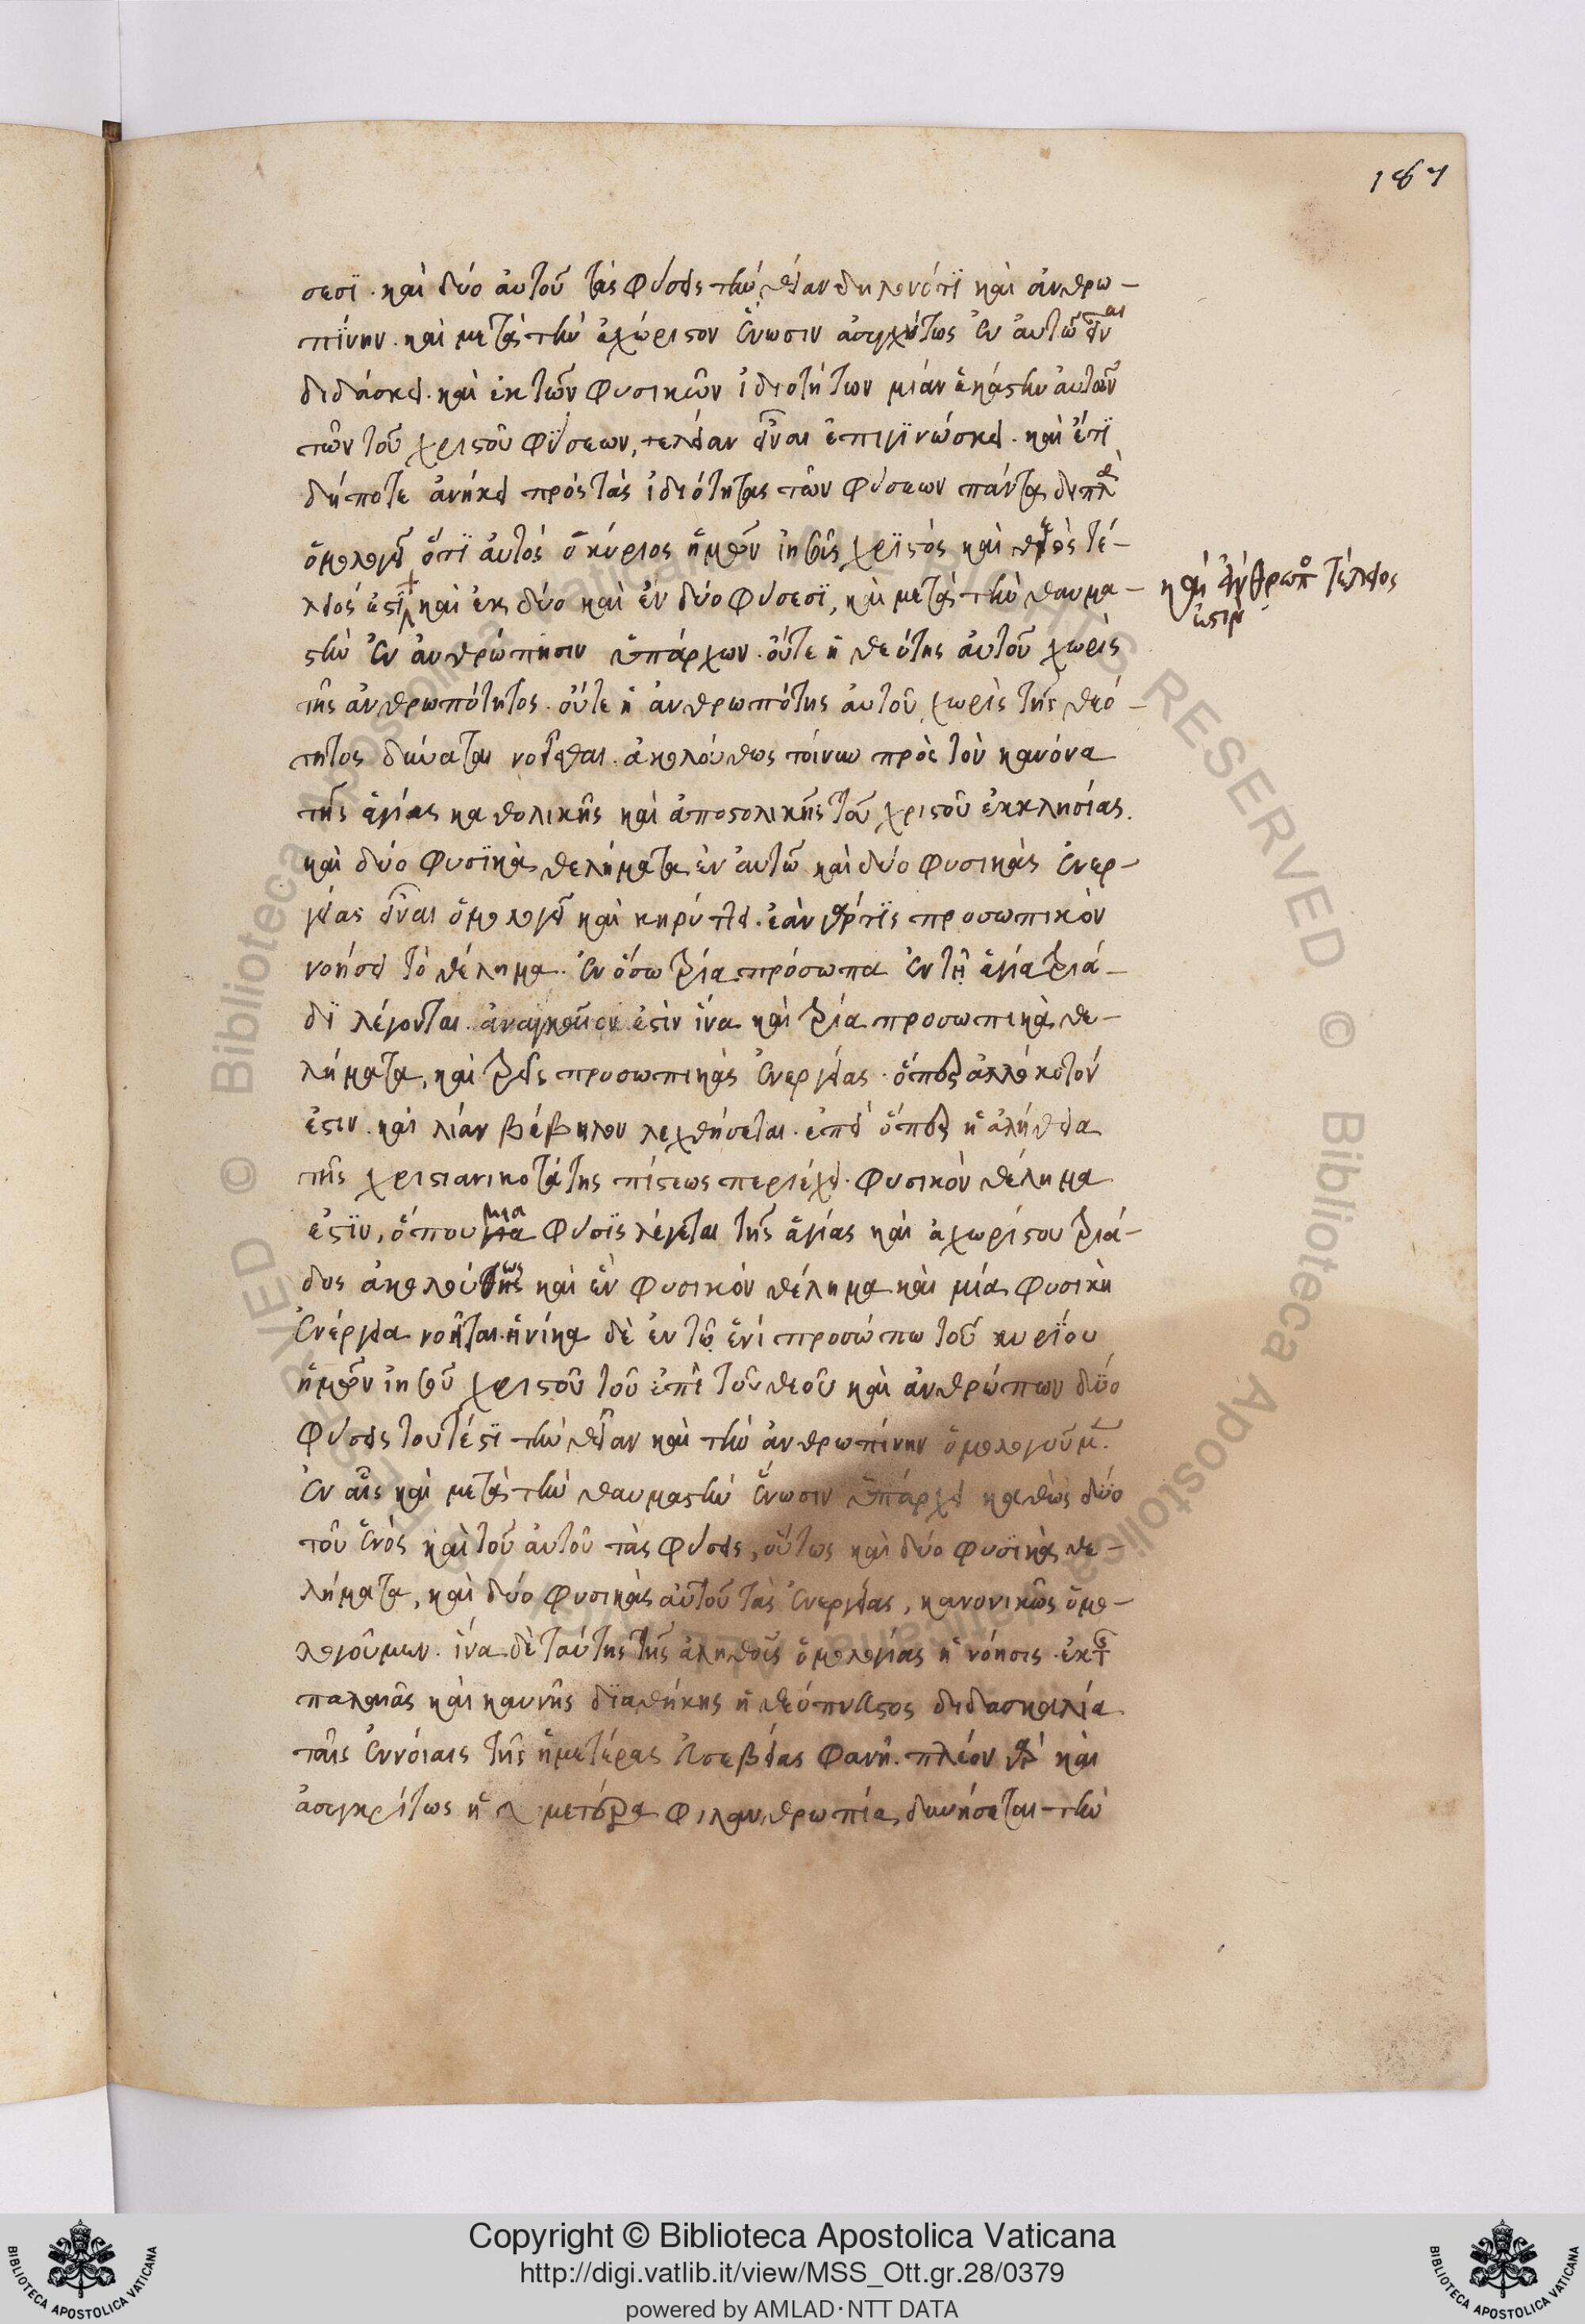 187
σεσϊ. καὶ δύο αὐτοῦ τὰς φύσεις τὴν θείαν δηλονότϊ καὶ ἀνθρω-
πίνην. καὶ μετὰ τὴν ἀχώριστον ἕνωσιν ἀσυγχύτως ἐν αὐτῶ εἶναι
διδάσκει. καὶ ἐκ τῶν φυσικῶν ἰδιοτήτων μιάν ἑκάστην αὐτῶν
τῶν τοῦ χριστοῦ φύσεων, τελείαν εἶναι ἐπιγϊνώσκει. καὶ ἔτϊ
δήποτε ἀνήκει πρὸς τὰς ἰδιότητας τῶν φύσεων πάντα διπλᾶ
ὁμολογεῖ ὅτϊ αὐτὸς ὁ κύριος ἡμῶν ἰησοῦς χρϊστὸς καὶ θεὸς τέ-
λειός ἐστϊ καὶ ἐκ δύο καὶ ἐν δύο φύσεσϊ, καὶ μετὰ τὴν θαυμα-
καὶ ἄνθρωπος τέλειος
ἐστιν
στὴν ἐν ἀνθρώπησιν ὑπάρχων. οὔτε ἡ θεότης αὐτοῦ χωρὶς
τῆς ἀνθρωπότητος. οὔτε ἡ ἀνθρωπότης αὐτοῦ χωρὶς τῆς θεό-
τητος δύναται νοεῖσθαι. ἀκολούθως τοίνυν πρὸς τὸν κανόνα
τῆς ἁγίας καθολικῆς καὶ ἀποστολικῆς τοῦ χριστοῦ ἐκκλησίας.
καὶ δύο φυσϊκὰ θελήματα ἐν αὐτῶ καὶ δύο φυσικὰς ἐνερ-
γείας εἶναι ὁμολογεῖ καὶ κηρύττει. ἐὰν γάρ τϊς προσωπικὸν
νοήσει τὸ θέλημα. ἐν ὅσω τρία πρόσωπα ἐν τῇ ἁγία τριά-
δϊ λέγονται. ἀναγκαῖον ἐστὶν ἵνα καὶ τρία προσωπικὰ θε-
λήματα, καὶ τρεῖς προσωπικὰς ἐνεργείας. ὅπερ ἀλλόκοτόν
ἐστιν. καὶ λίαν βέβηλον λεχθήσεται. ἐπεὶ ὅπερ ἡ ἀλήθεια
τῆς χριστιανικοτάτης πίστεως περιέχει. φυσικὸν θέλημα
ἐστϊν, ὅπου μία φύσϊς λέγεται τῆς ἁγίας καὶ ἀχωρίστου τριά-
δος ἀκολούθως καὶ ἓν φυσικὸν θέλημα καὶ μία φυσικὴ
ἐνέργεια νοῆται. ἡνίκα δὲ ἐν τῷ ἑνὶ προσώπω τοῦ κυρϊου
ἡμῶν ἰησοῦ χριστοῦ τοῦ ἐπὶ τοῦ θεοῦ καὶ ἀνθρώπων δύο
φύσεις τουτέστϊ τὴν θείαν καὶ τὴν ἀνθρωπίνην ὁμολογοῦμεν.
ἐν αἷς καὶ μετὰ τὴν θαυμαστὴν ἕνωσιν ὑπάρχει καθὼς δύο
τοῦ ἑνὸς καὶ τοῦ αὐτοῦ τὰς φύσεις, οὕτως καὶ δύο φυσϊκὰ θε-
λήματα, καὶ δύο φυσικὰς αὐτοῦ τὰς ἐνεργείας, κανονικῶς ὁμο-
λογοῦμεν. ἵνα δὲ ταύτης τῆς ἀληθοῦς ὁμολογίας ἡ νόησις. ἐκ τῆς
παλαιᾶς καὶ καινῆς δϊαθήκης ἡ θεόπνευστος διδασκαλία
ταῖς ἐννοίαις τῆς ἡμετέρας εὐσεβείας φανῆ. πλέον γὰρ καὶ
ἀσυγκρίτως ἡ ὑμετέρα φιλανθρωπία δυνήσεται τὴν
Copyright © Biblioteca Apostolica Vaticana
http://digi.vatlib.it/view/MSS_Ott.gr.28/0379
powered by AMLAD·NTT DATA